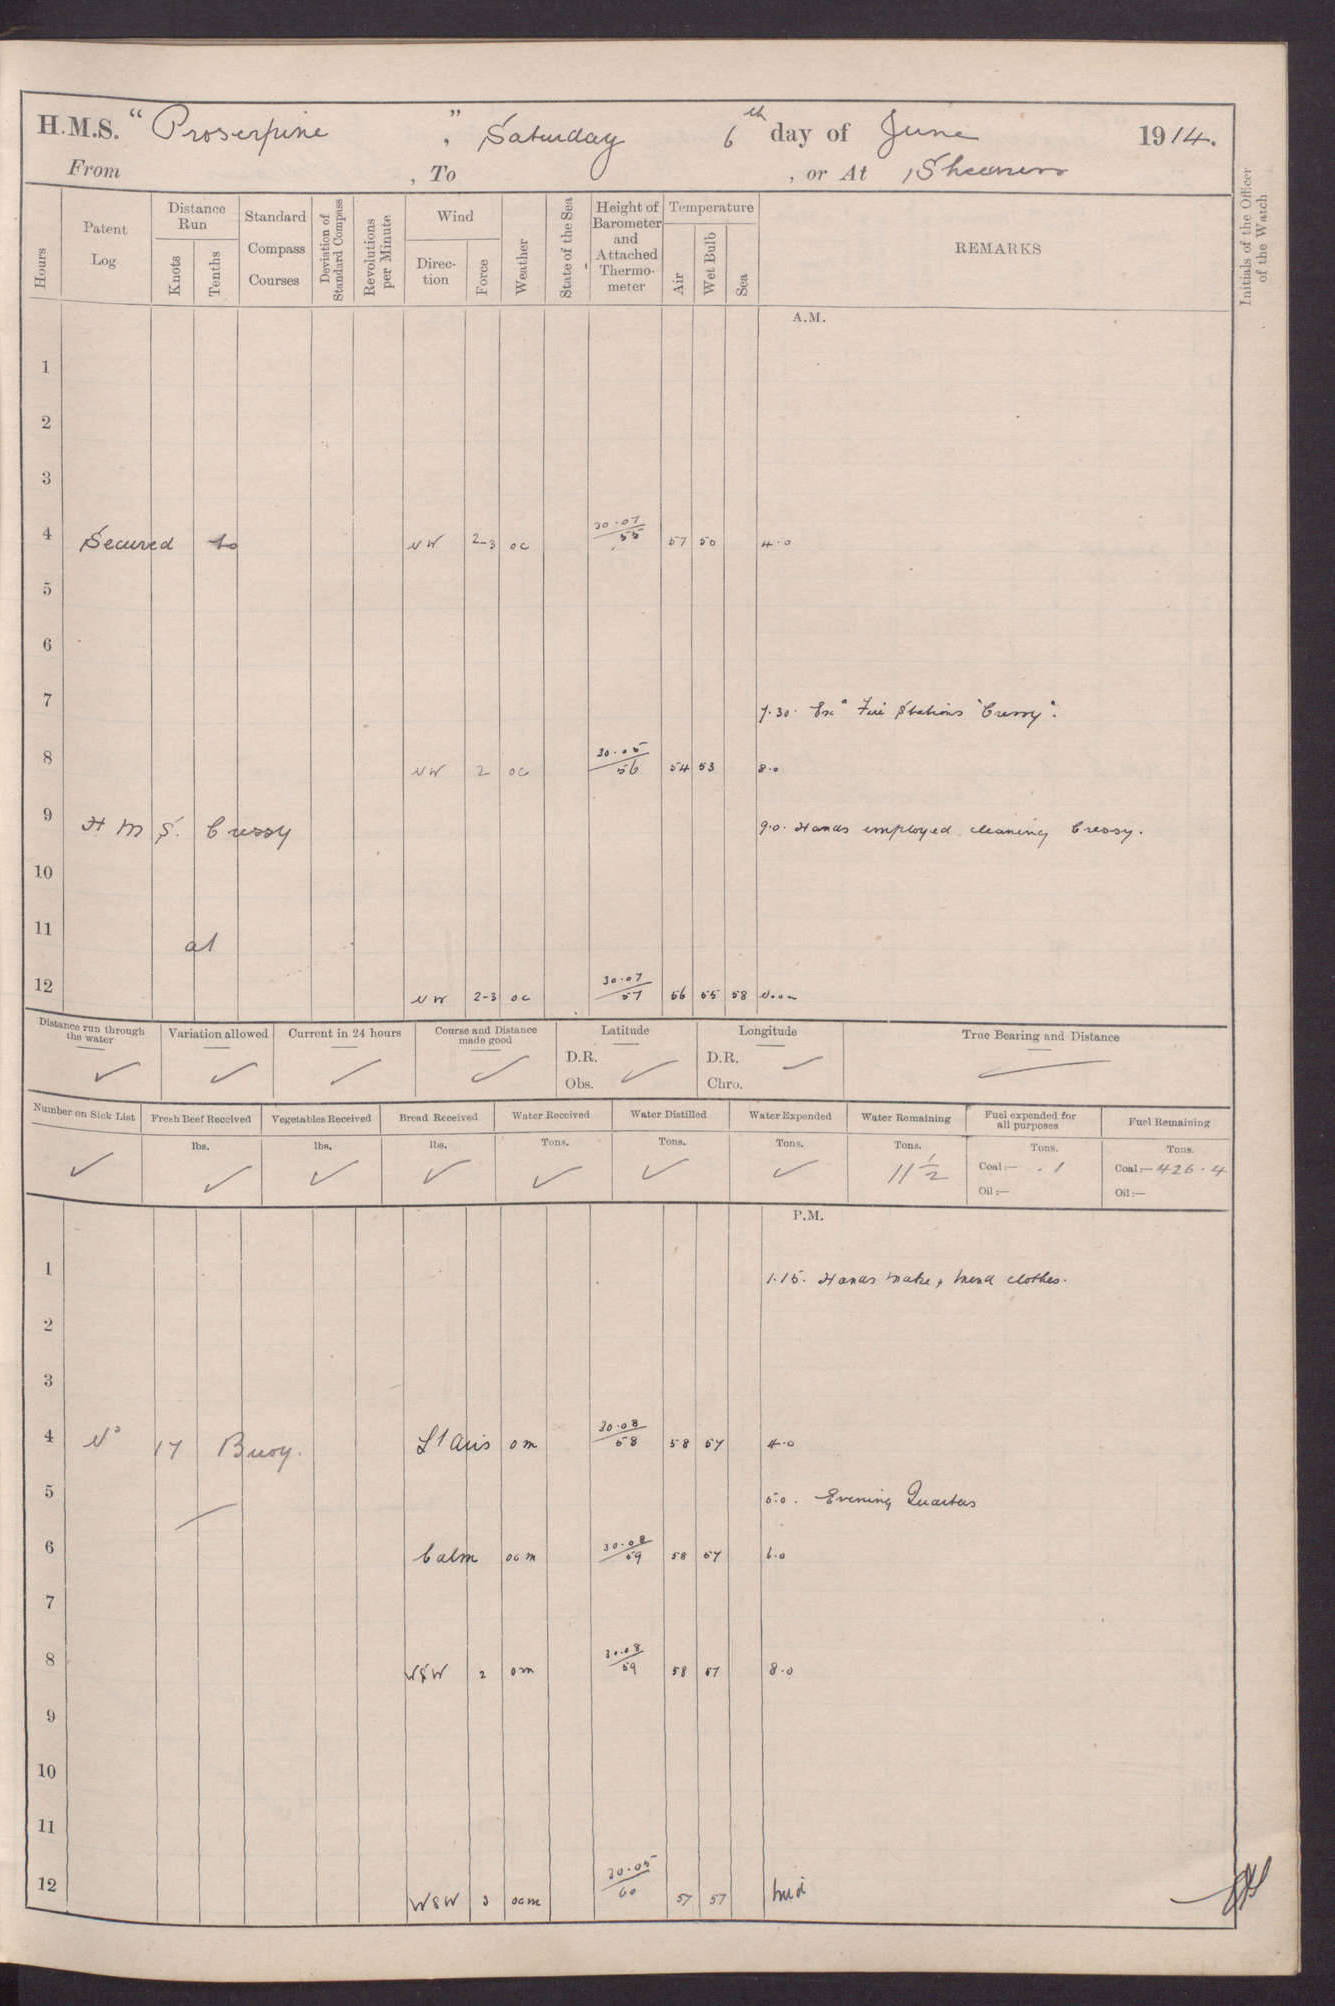 H.M.S. "Proserpine", Saturday 6th day of June 1914.
From , To , or At Sheerness
Hours
Patent Log
Distance Run
Knots
Tenths
Standard Compass Courses
Deviation of Standard Compass
Revolutions per Minute
Wind
Direction
Force
Weather
State of the Sea
Height of Barometer and Attached Thermometer
Temperature
Air
Wet Bulb
Sea
REMARKS
Initials of the Officer of the Watch
A.M.
1
2
3
4 Secured to NW 2-3 oc 30.07/55 57 50 4.0
5
6
7 7.30. Exd Fire Stations "Cressy".
8 NW 2 oc 30.05/56 54 53 8.0
9 H M S. Cressy 9.0. Hands employed cleaning Cressy.
10
11 at
12 NW 2-3 oc 30.07/57 56 55 58 Noon
Distance run through the water ✓
Variation allowed ✓
Current in 24 hours ✓
Course and Distance made good ✓
Latitude D.R. Obs. ✓
Longitude D.R. Chro. ✓
True Bearing and Distance ✓
Number on Sick List ✓
Fresh Beef Received lbs. ✓
Vegetables Received lbs. ✓
Bread Received lbs. ✓
Water Received Tons. ✓
Water Distilled Tons. ✓
Water Expended Tons. ✓
Water Remaining Tons. 11 1/2
Fuel expended for all purposes Tons. Coal:— .1 Oil:—
Fuel Remaining Tons. Coal:— 426.4 Oil:—
P.M.
1 1.15. Hands make & mend clothes.
2
3
4 No 17 Buoy. Lt airs om 30.08/58 58 57 4.0
5 5.0. Evening Quarters
6 Calm ocm 30.08/59 58 57 6.0
7
8 WSW 2 om 30.08/59 58 57 8.0
9
10
11
12 WSW 3 ocm 30.05/60 57 57 Mid